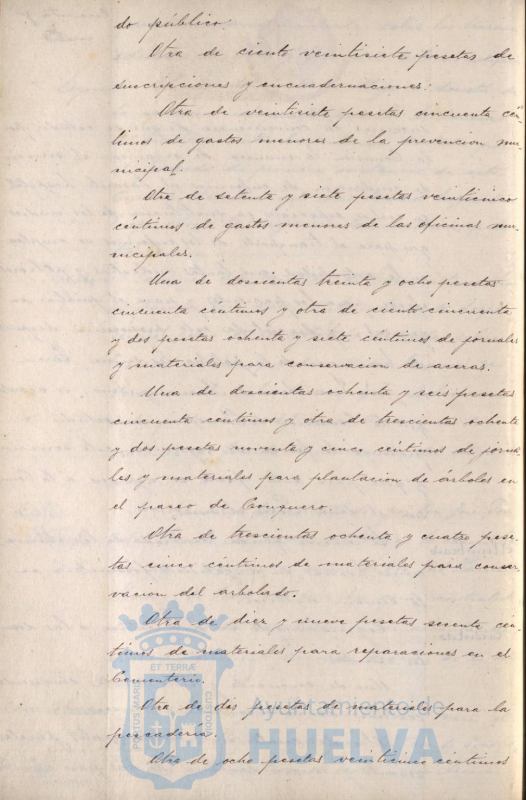 do público.
Otra de ciento veintisiete pesetas de
suscripciones y encuadernaciones.
Otra de veintisiete pesetas cincuenta cén-
timos de gastos menores de la prevencion mu-
nicipal.
Otra de setenta y siete pesetas veinticinco
céntimos de gastos menores de las oficinas mu-
nicipales.
Una de doscientas treinta y ocho pesetas
cincuenta centimos y otra de ciento cincuenta
y dos pesetas ochenta y siete céntimos de jornales
y materiales para conservacion de aceras.
Una de doscientas ochenta y seis pesetas
cincuenta céntimos y otra de trescientas ochenta
y dos pesetas noventa y cinco céntimos de jorna-
les y materiales para plantacion de árboles en
el paseo de Conquero.
Otra de trescientas ochenta y cuatro pese-
tas cinco céntimos de materiales para conser-
vacion del arbolado.
Otra de diez y nueve pesetas sesenta cén-
timos de materiales para reparaciones en el
Cementerio.
Otra de dos pesetas de materiales para la
pescadería.
Otra de ocho pesetas veinticinco centimos
PORTUS MARIS
ET TERRÆ
CUSTODIA
Ayuntamiento de
HUELVA